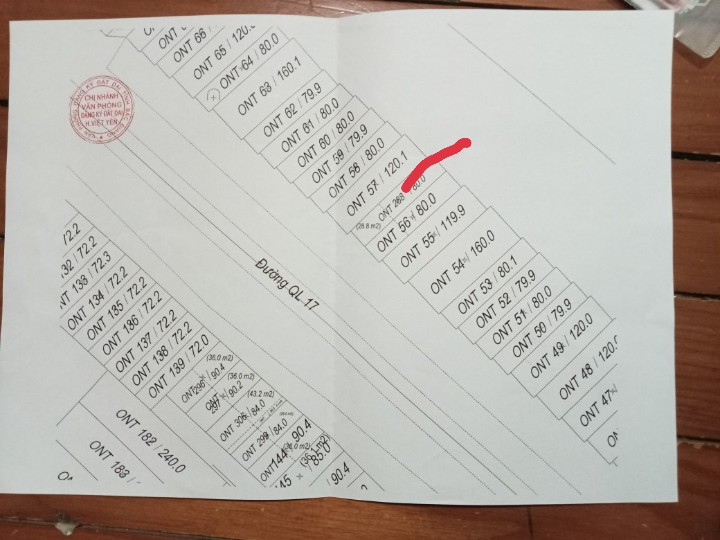 ONT 66
ONT 65 / 120.
ONT 64 / 80.0
ONT 63 / 160.1
ONT 62 / 79.9
ONT 61 / 80.0
ONT 60 / 80.0
ONT 59 / 79.9
ONT 58 / 80.0
ONT 57 / 120.1
ONT 268 / 80.0
(28.8 m2)
ONT 56 / 80.0
ONT 55 / 119.9
ONT 54 / 160.0
ONT 53 / 80.1
ONT 52 / 79.9
ONT 51 / 80.0
ONT 50 / 79.9
ONT 49 / 120.0
ONT 48 / 120.
ONT 47
CHI NHÁNH
VĂN PHÒNG
ĐĂNG KÝ ĐẤT ĐAI
H.VIỆT YÊN
Đường QL 17
/ 72.2
132 / 72.2
NT 133 / 72.3
ONT 134 / 72.2
ONT 135 / 72.2
ONT 136 / 72.2
ONT 137 / 72.2
ONT 138 / 72.2
ONT 139 / 72.0
(36.0 m2)
ONT 296 / 90.4
(36.0 m2)
ONT 297 / 90.2
(43.2 m2)
ONT 306 / 84.0
ONT 299 / 84.0
ONT 144 / 90.4
(36.0 m2)
145 / 85.0
/ 90.4
ONT 182 / 240.0
ONT 183 /